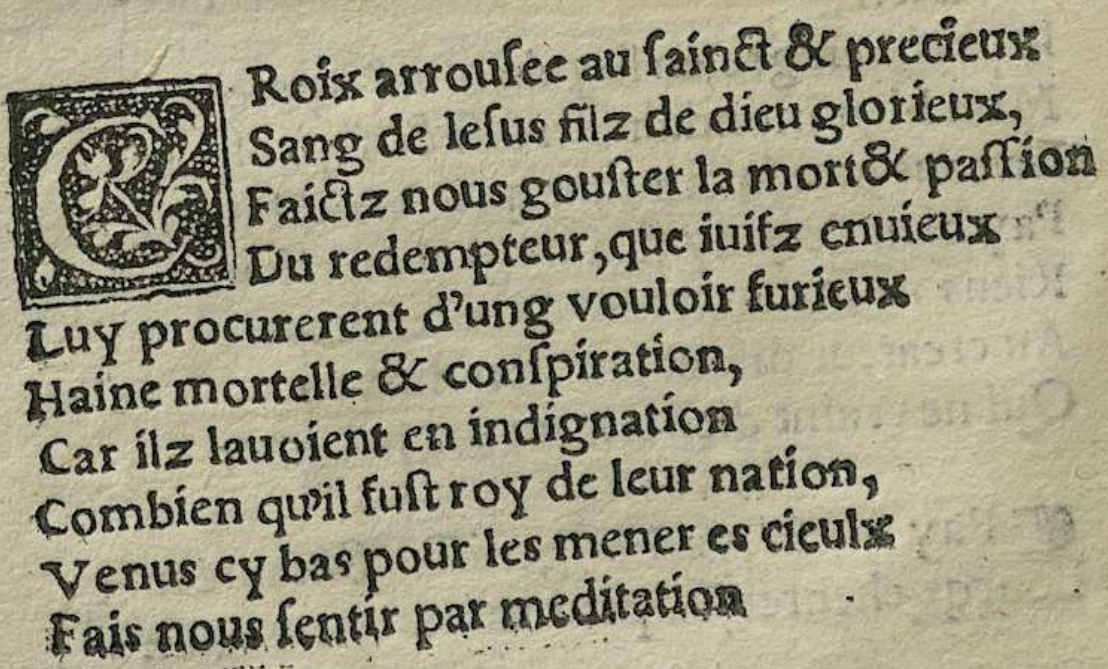 CRoix arrouſee au ſainct & precieux
Sang de Ieſus filz de dieu glorieux,
Faictz nous gouſter la mort & paſſion
Du redempteur, que iuifz enuieux
Luy procurerent d'ung vouloir furieux
Haine mortelle & conſpiration,
Car ilz lauoient en indignation
Combien qu'il fuſt roy de leur nation,
Venus cy bas pour les mener es cieulx
Fais nous ſentir par meditation